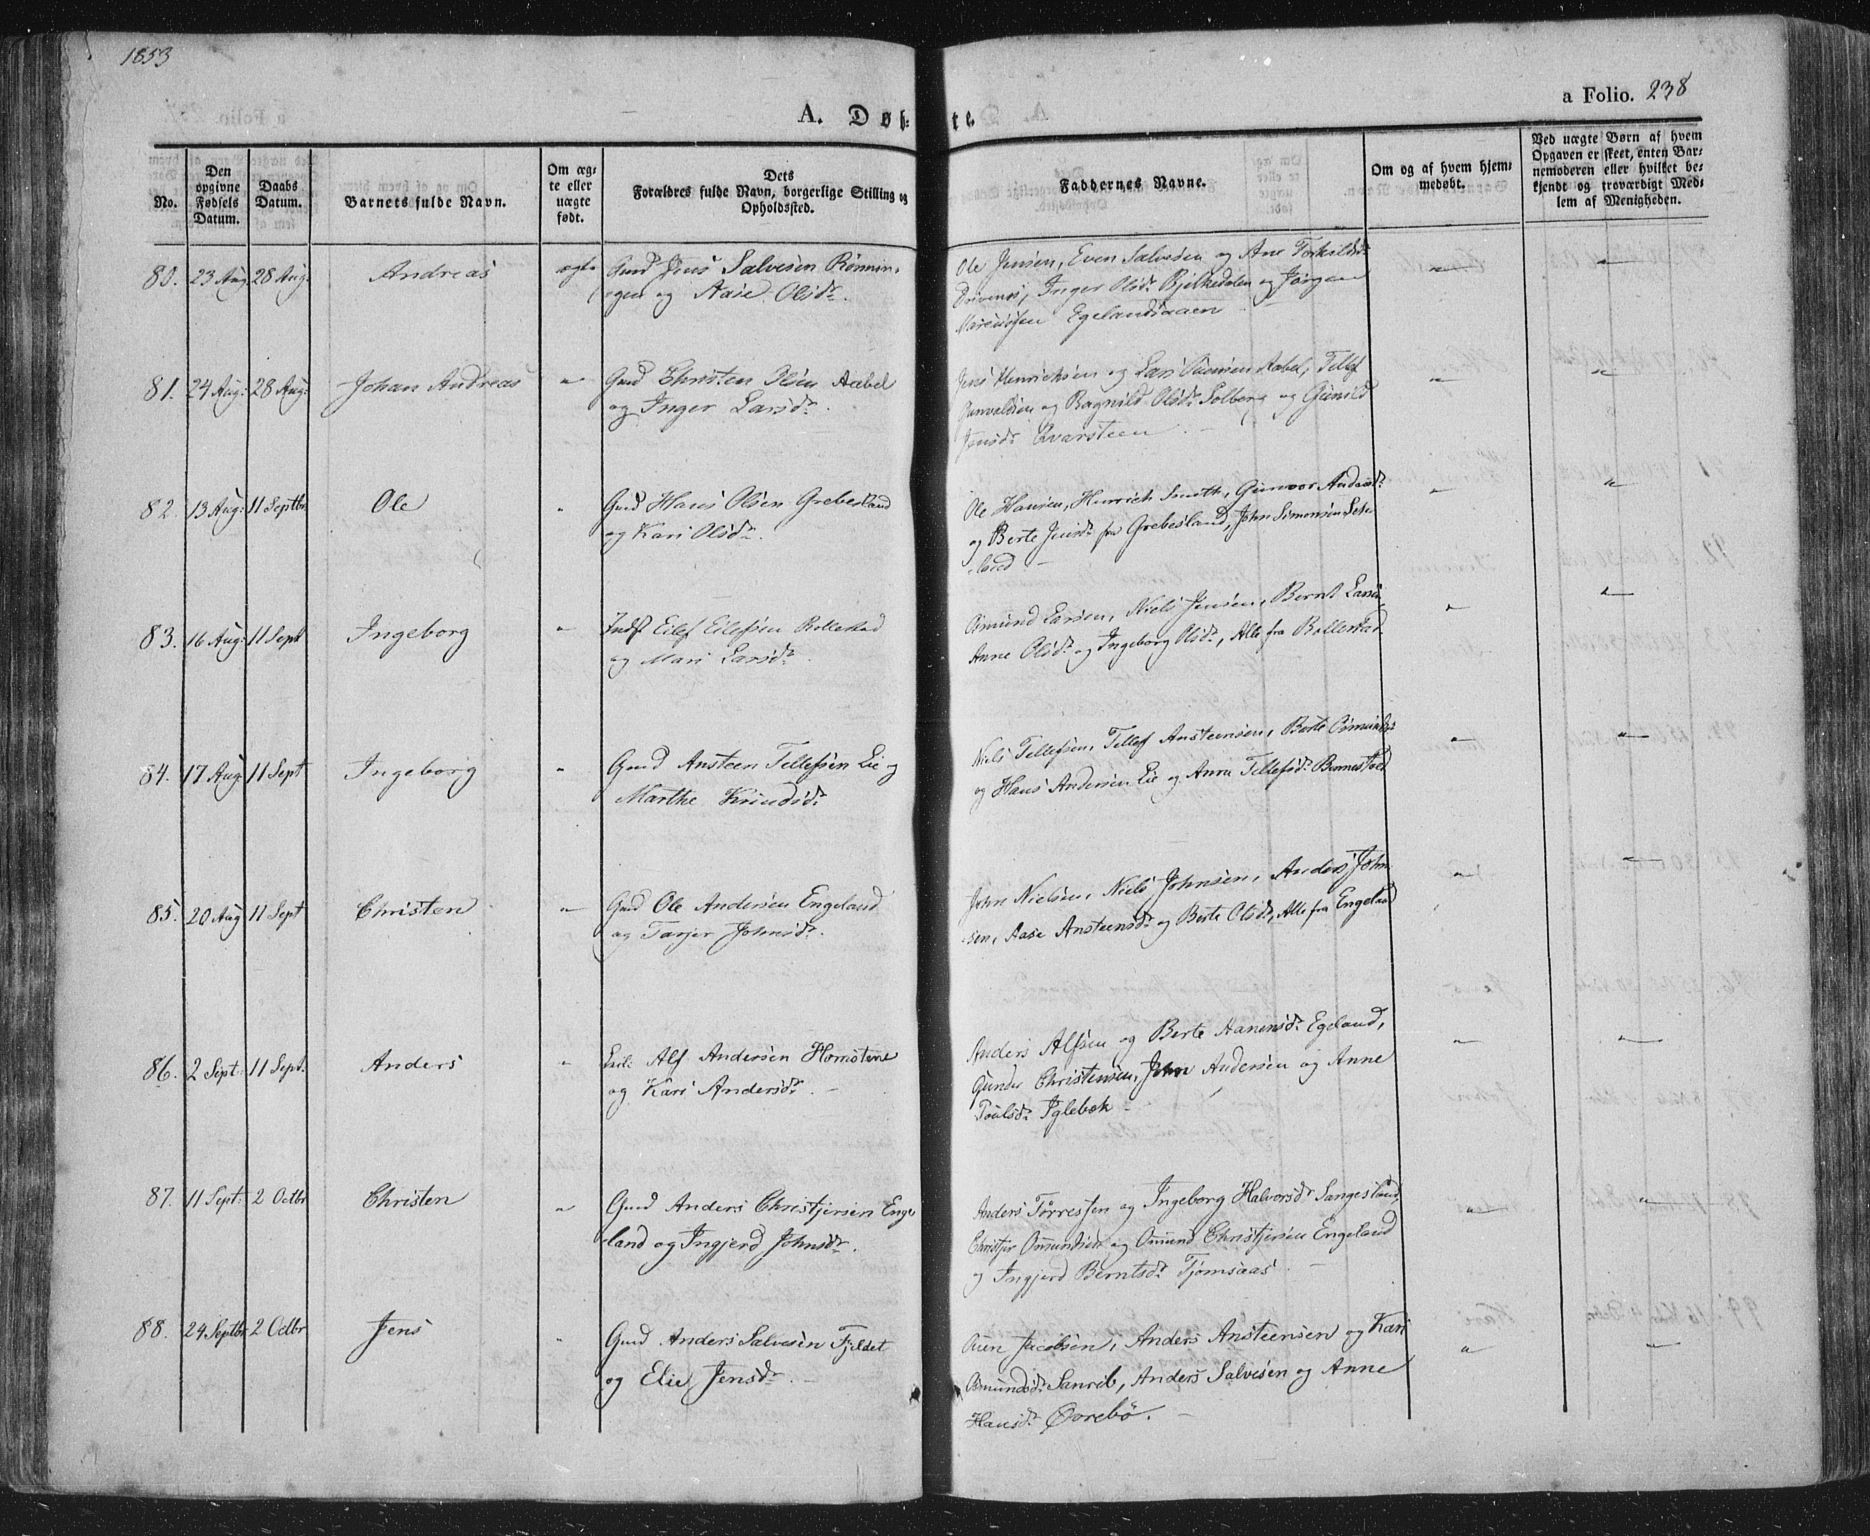 1853
A. Døbte.
a Folio. 238
No.
Den opgivne Fødsels Datum.
Daabs Datum.
Barnets fulde Navn.
Om ægte eller uægte født.
Dets Forældres fulde Navn, borgerlige Stilling og Opholdssted.
Faddernes Navne.
Om og af hvem hjemmedøbt.
Ved uægte Børn af hvem Opgaven er skeet, enten Barnemoderen eller hvilket bekjendt og troværdigt Medlem af Menigheden.
80. 23 Aug 28 Aug. Andreas ægte Gmd Jens Salvesen Rönnin-
gen og Aase Olsdr.
Ole Jensen, Even Salvesen og Ane Torkildsdr
Drivenes, Inger Olsdr Bjelkedalen og Jörgen
Egelandsaaen
81. 24 Aug: 28 Aug: Johan Andreas " Gmd Christen Olsen Aabel
og Inger Larsdr.
Jens Henrichsen og Lars Aabel, Tellef
Gunvaldsen og Ragnild Olsdr Solberg og Gunild
Jensdr Qvarsteen
82. 13 Aug: 11 Septbr Ole " Gmd Hans Olsen Grebesland
og Kari Olsdr.
Ole Hansen, Henrich Smith, Gunvor Andersdr
og Berte Jensdr fra Grebesland, John Simonsen
land
83. 16 Aug: 11 Sept Ingeborg " Indst Eilef Eilefsen Rollestad
og Mari Larsdr.
Osmund Larsen, Niels Jensen, Bernt Larsen,
Anne Olsdr og Ingeborg Olsdr, Alle fra Rollestad
84. 17 Aug: 11 Sept Ingeborg " Gmd Ansteen Tellefsen Lie og
Marthe Knudsdr
Niels Tellefsen, Tellef Ansteensen, Berte
og Hans Andersen Lie og Anne Tellefsdr Bennestvedt
85. 20 Aug 11 Sept Christen " Gmd Ole Andersen Engeland
og Tarjer Johnsdr.
John Nielsen, Niels Johnsen, Anders John-
sen, Aase Ansteensdr og Berte Olsdr, Alle fra Engeland
86. 2 Sept: 11 Sept. Anders " Alf Andersen Homstene
og Kari Andersdr.
Anders Alfsen og Berte Aanensdr Egeland,
Gunder Christensen, John Andersen og Anne
Poulsdr Iglebæk
87. 11 Sept: 2 Octbr Christen " Gmd Anders Christjersen Enge
land og Ingjerd Johnsdr.
Anders Torressen og Ingeborg Halvorsdr Sangesland,
Christjer Omundsen og Omund Christjersen Engeland
og Ingjerd Berntsdr Tjomsaas
88. 24 Septbr 2 Octbr Jens " Gmd Anders Salvesen Fjeldet
og Elie Jensdr.
Jacobsen, Anders Ansteensen og Kari
Osmundsdr Sanrib, Anders Salvesen og Anne
Hansdr Øvrebö.